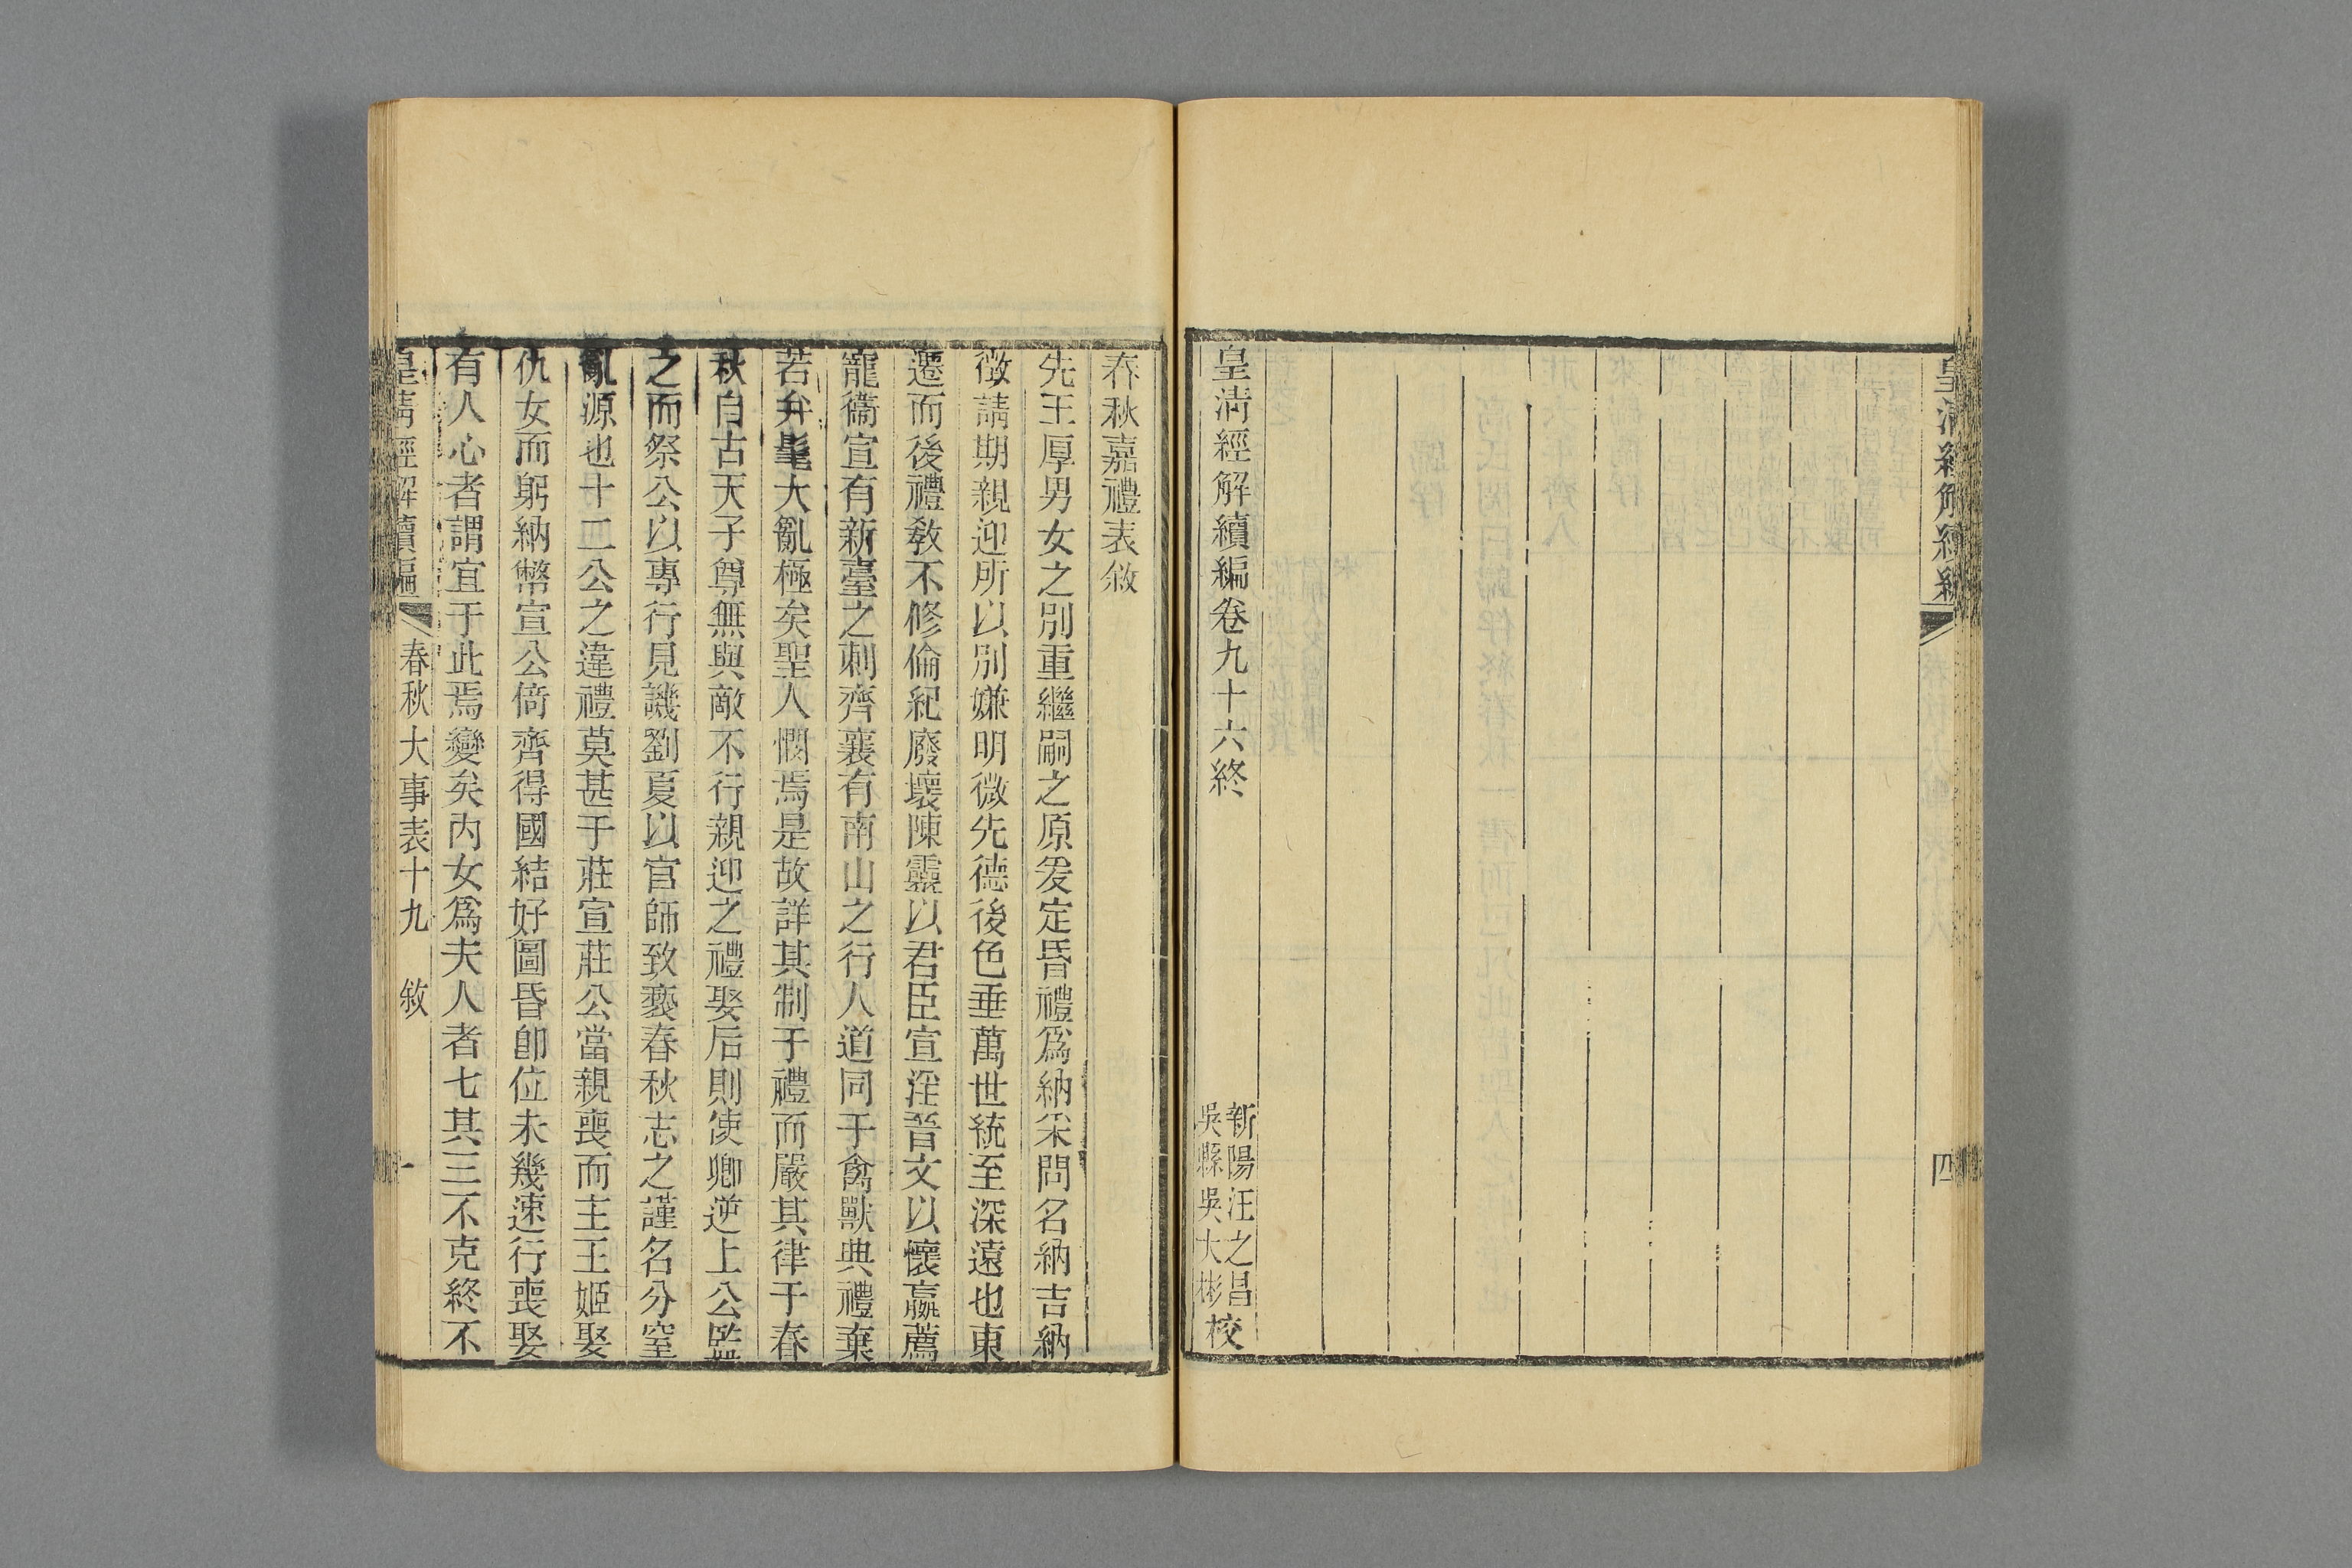 皇清經解續編
四
皇清經解續編卷九十六終
新陽汪之昌
吳縣吳大彬
校
春秋嘉禮表敘
先王厚男女之別重繼嗣之原爰定昏禮爲納采問名納吉納
徵請期親迎所以別嫌明微先德後色垂萬世統至深遠也東
遷而後禮敎不修倫紀廢壞陳靈以君臣宣淫晉文以懷嬴薦
寵衞宣有新臺之刺齊襄有南山之行人道同于禽獸典禮棄
若弁髦大亂極矣聖人憫焉是故詳其制于禮而嚴其律于春
秋自古天子尊無與敵不行親迎之禮娶后則使卿逆上公監
之而祭公以專行見譏劉夏以官師致褻春秋志之謹名分窒
亂源也十二公之違禮莫甚于莊宣莊公當親喪而主王姬娶
仇女而躬納幣宣公倚齊得國結好圖昏卽位未幾速行喪娶
有人心者謂宜于此焉變矣内女爲夫人者七其三不克終不
皇清經解續編
春秋大事表十九 敘
一